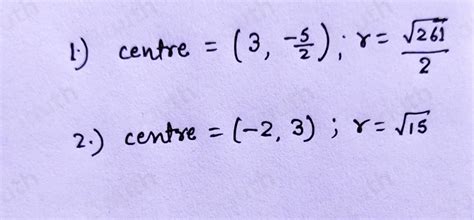 1.) centre = (3, -5/2) ; r = √261/2
2.) centre = (-2, 3) ; r = √15